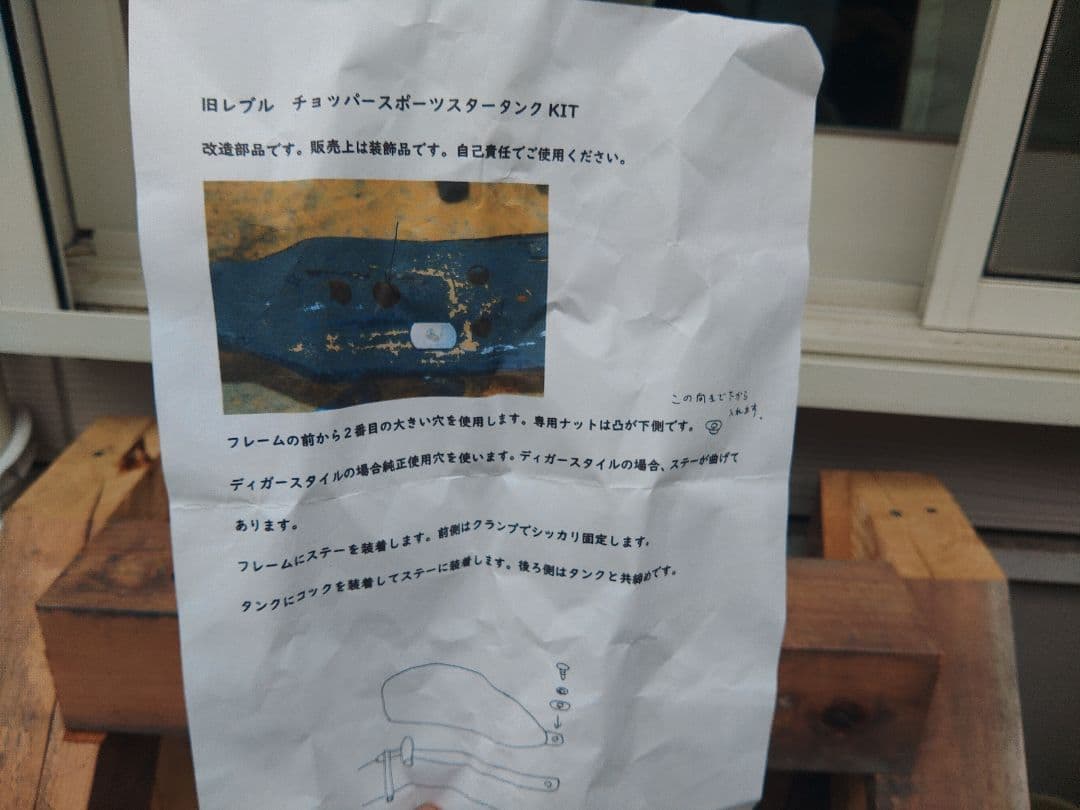 旧レブル チョッパースポーツスタータンク KIT
改造部品です。販売上は装飾品です。自己責任でご使用ください。
この向きで下から
入れます。
フレームの前から2番目の大きい穴を使用します。専用ナットは凸が下側です。
ディガースタイルの場合純正使用穴を使います。ディガースタイルの場合、ステーが曲げて
あります。
フレームにステーを装着します。前側はクランプでシッカリ固定します。
タンクにコックを装着してステーに装着します。後ろ側はタンクと共締めです。